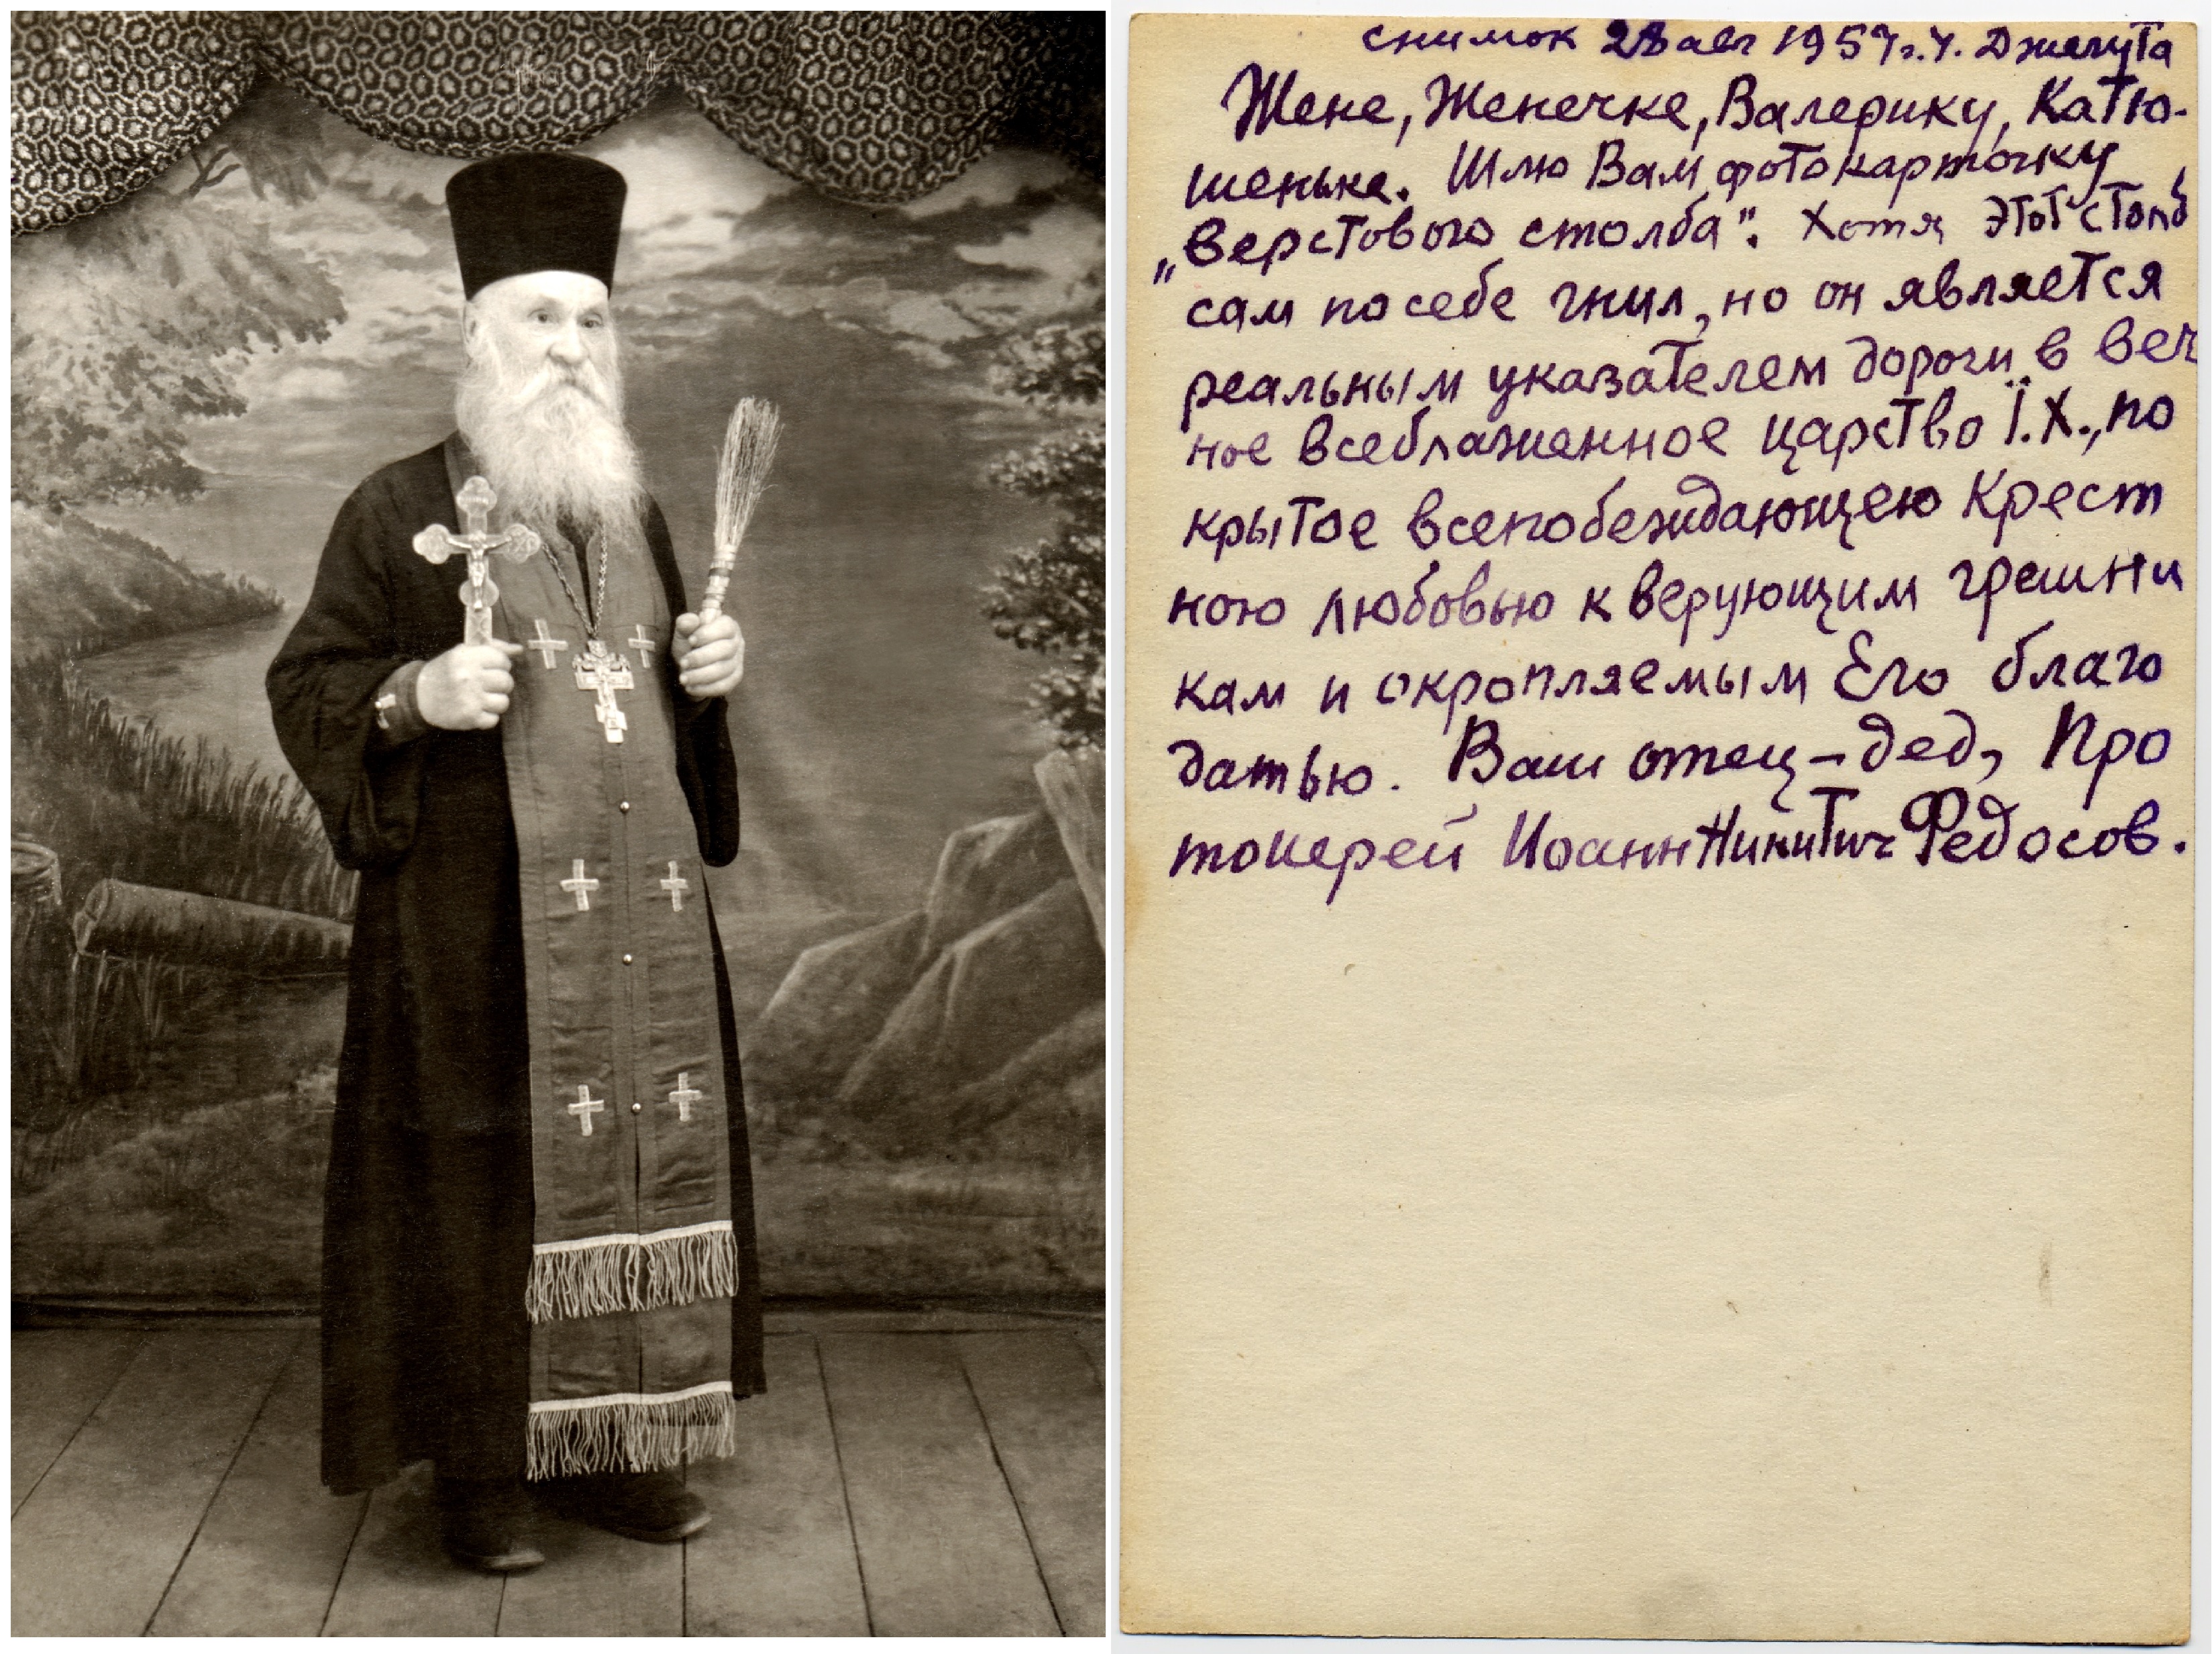 снимок 28 авг 1957 г. У. Джегута
Жене, Женечке, Валерику, Катю-
шеньке. Шлю Вам фотокарточку
„Верстового столба". Хотя этот столб
сам по себе гнил, но он является
реальным указателем дороги в веч
ное всеблаженное царство І.Х., по
крытое всепобеждающею Крест
ною любовью к верующим грешни
кам и окропляемым Его благо
датью. Ваш отец-дед, Про
тоиерей Иоанн Никитич Федосов.